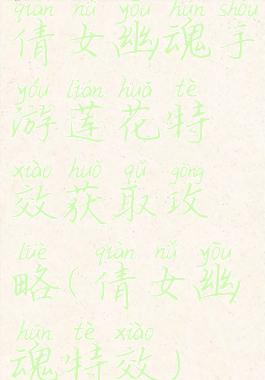 qiàn nǚ yōu hún shǒu
倩女幽魂手
yóu lián huā tè
游莲花特
xiào huò qǔ gōng
效获取攻
lüè qiàn nǚ yōu
略(倩女幽
hún tè xiào
魂特效)